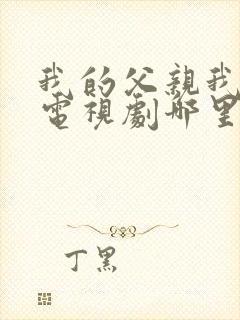 我的父親我
電視劇哪里
丁黑